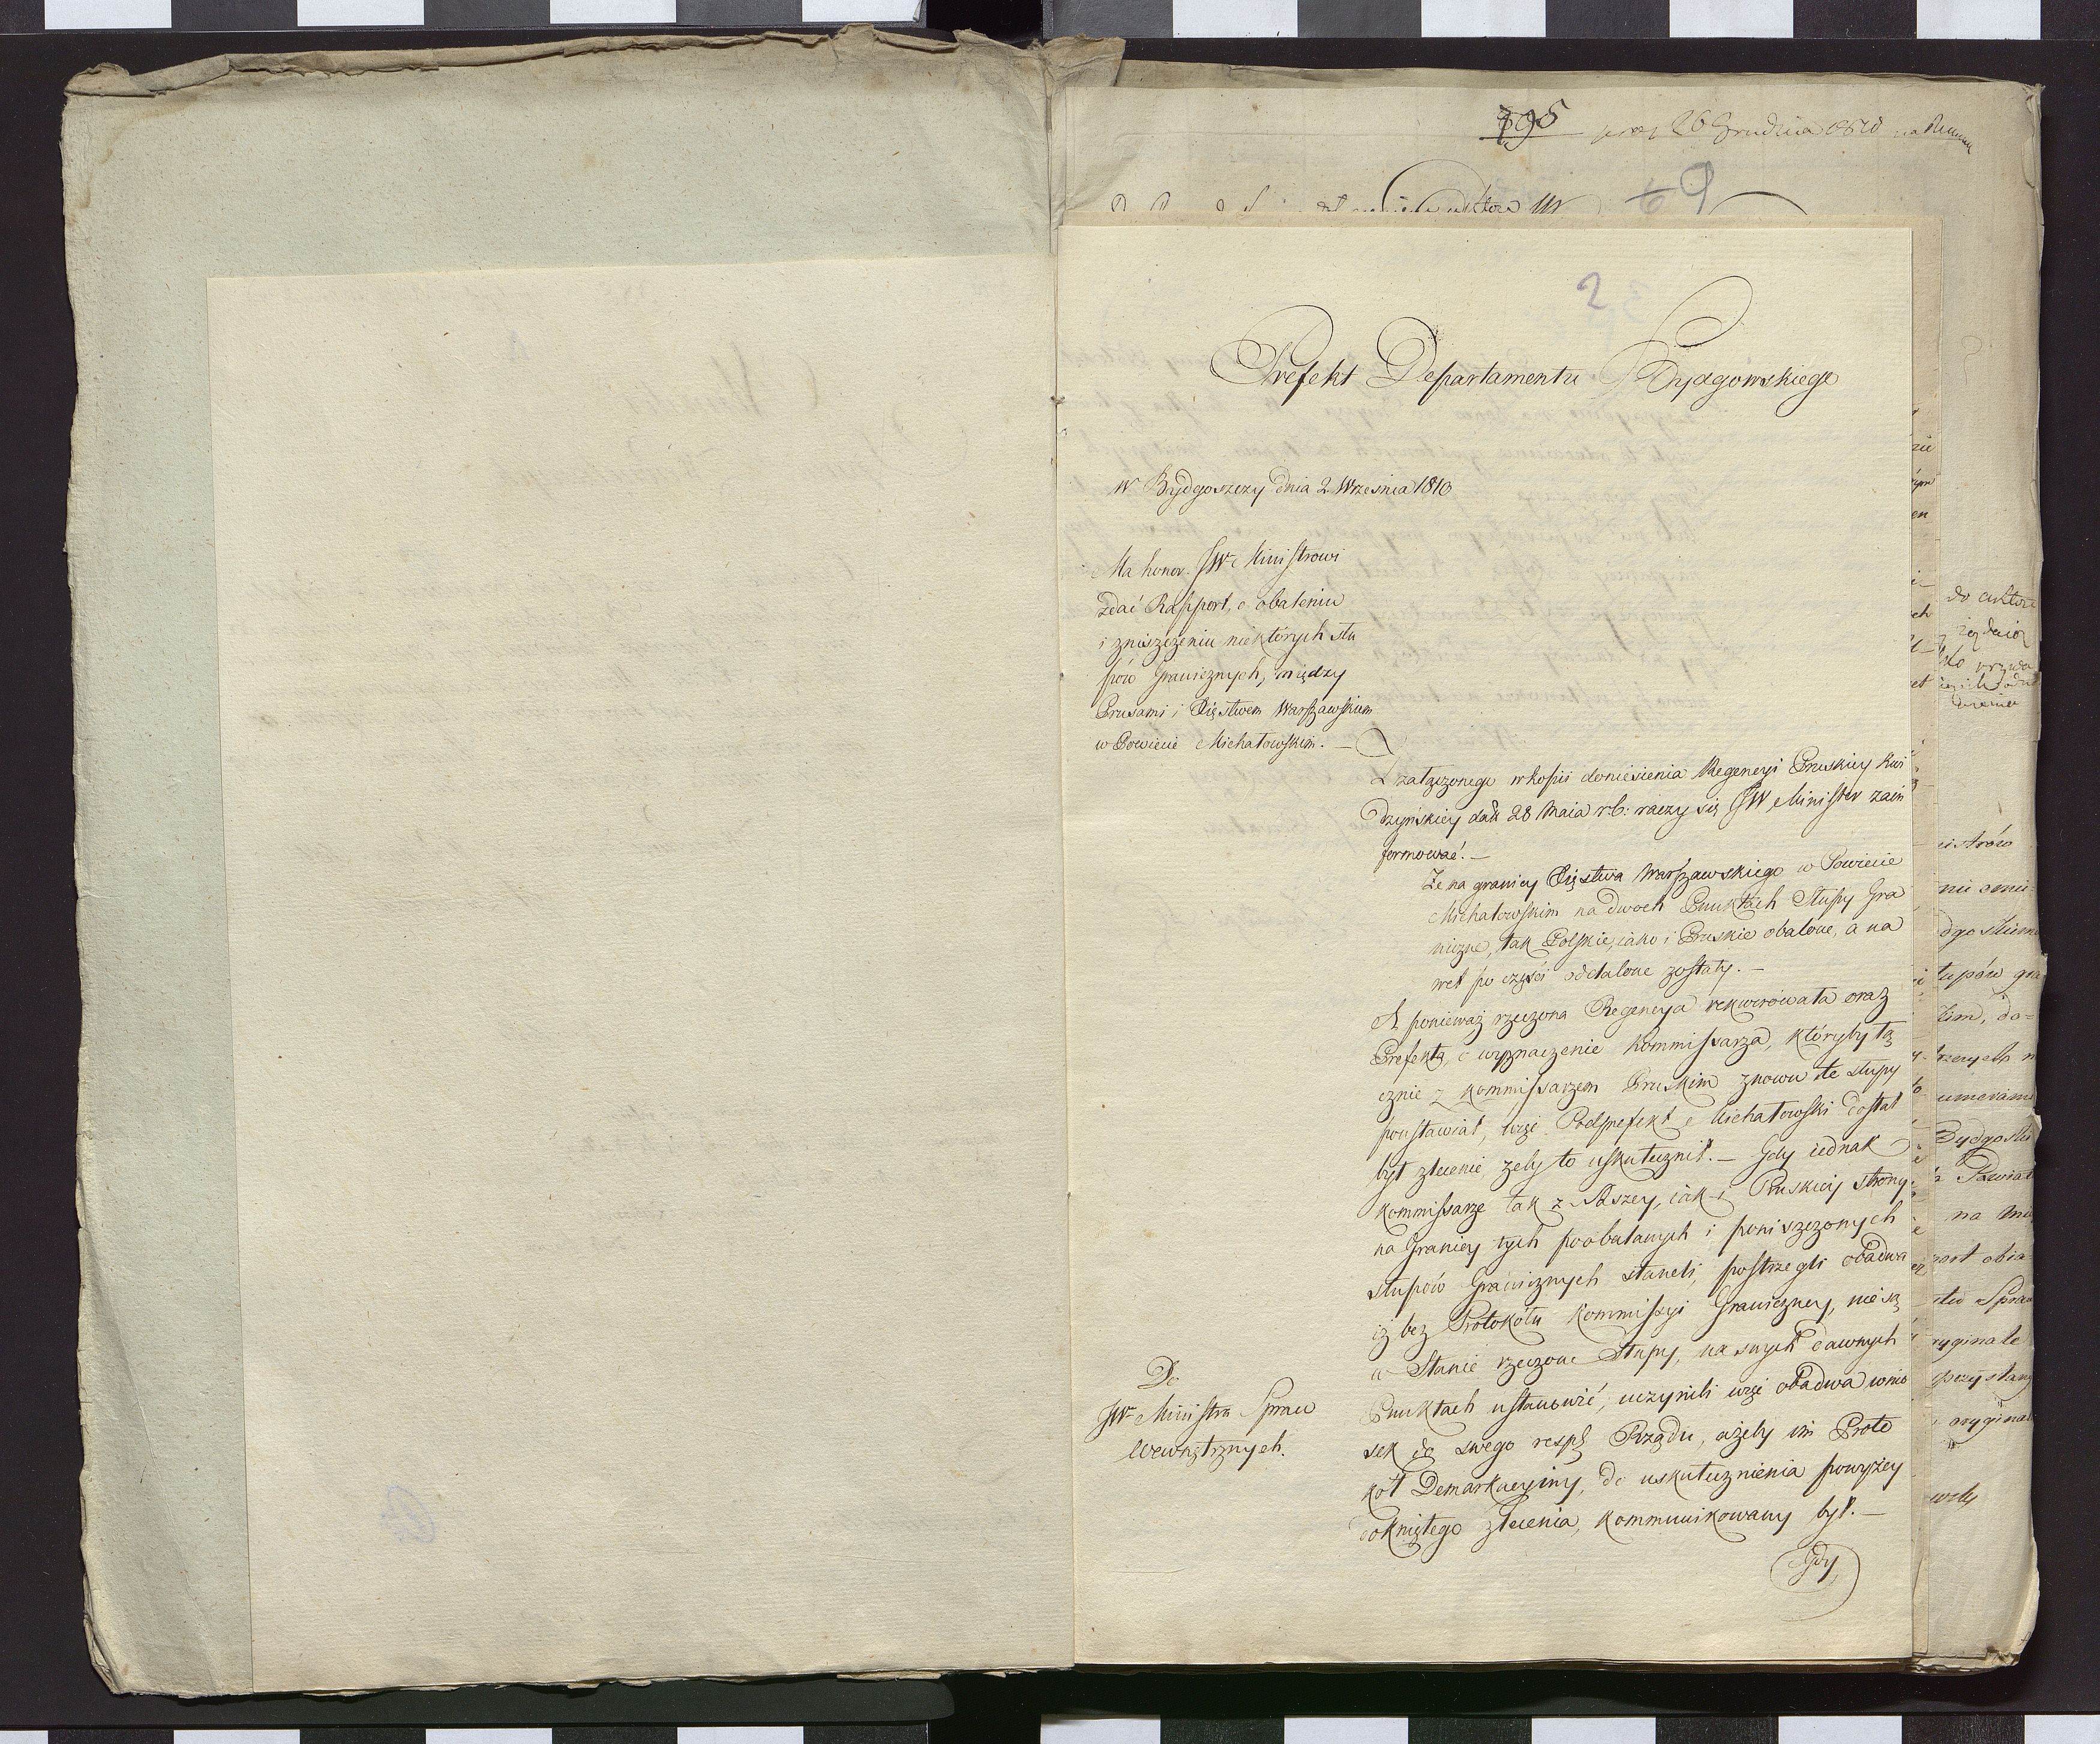 795 26 Grudnia 1810
69
2
Prefekt Departamentu Bydgowskiego
w Bydgoszczy dnia 2 Września 1810
Ma honor JW Ministrowi
zdać Rapport, o obaleniu
i zniszczeniu niektórych słu
pów Granicznych, między
Prusami i Xięstwem Warszawskiem
w Powiecie Michałowskim. —
Z załączonego w kopii doniesienia Regencyi Pruskiey Kwi
dzyńskiey 28 Maia r.b: raczy się JW Minister zain
formować. —
Że na granicy Xięstwa Warszawskiego w Powiecie
Michałowskim na dwoch Punktach Słupy Gra
niczne, tak Polskie, iako i Pruskie obalone, a na
wet po części oddalone zostały. —
A ponieważ rzeczona Regencya rekwirowała oraz
Prefekta, o wyznaczenie Kommissarza, któryby łą
cznie z Kommissarzem Pruskim znowu te słupy
poustawiał, więc Podprefekt Michałowski dostał
był zlecenie żeby to uskutecznił. — Gdy iednak
Kommissarze tak z Naszey, iak i Pruskiey strony
na Granicy tych poobalanych i poniszczonych
słupów Granicznych staneli, postrzegli obadwa
iż bez Protokółu Kommissyi Graniczney, nie są
w Stanie rzeczone Słupy, na swych dawnych
Punktach ustanowić, uczynili więc obadwa wnio
sek do swego resp: Rządu, ażeby im Proto
kół Demarkacyiny, do uskutecznienia powyżey
dotkniętego zlecenia, kommunikowany był. —
Gdy
Do
JW Ministra Spraw
Wewnętrznych.